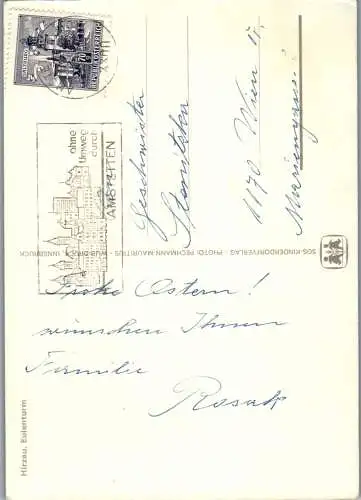 REPUBLIK ÖSTERREICH
ohne
Umweg
durch
AMSTETTEN
An
Geschwister
1170 Wien 17,
SOS-KINDERDORFVERLAG · PHOTO: PECHMANN MAURITIUS · WUB-DRUCK · INNSBRUCK
Frohe Ostern!
wünschen Ihnen
Familie
Hirzau, Eulenturm